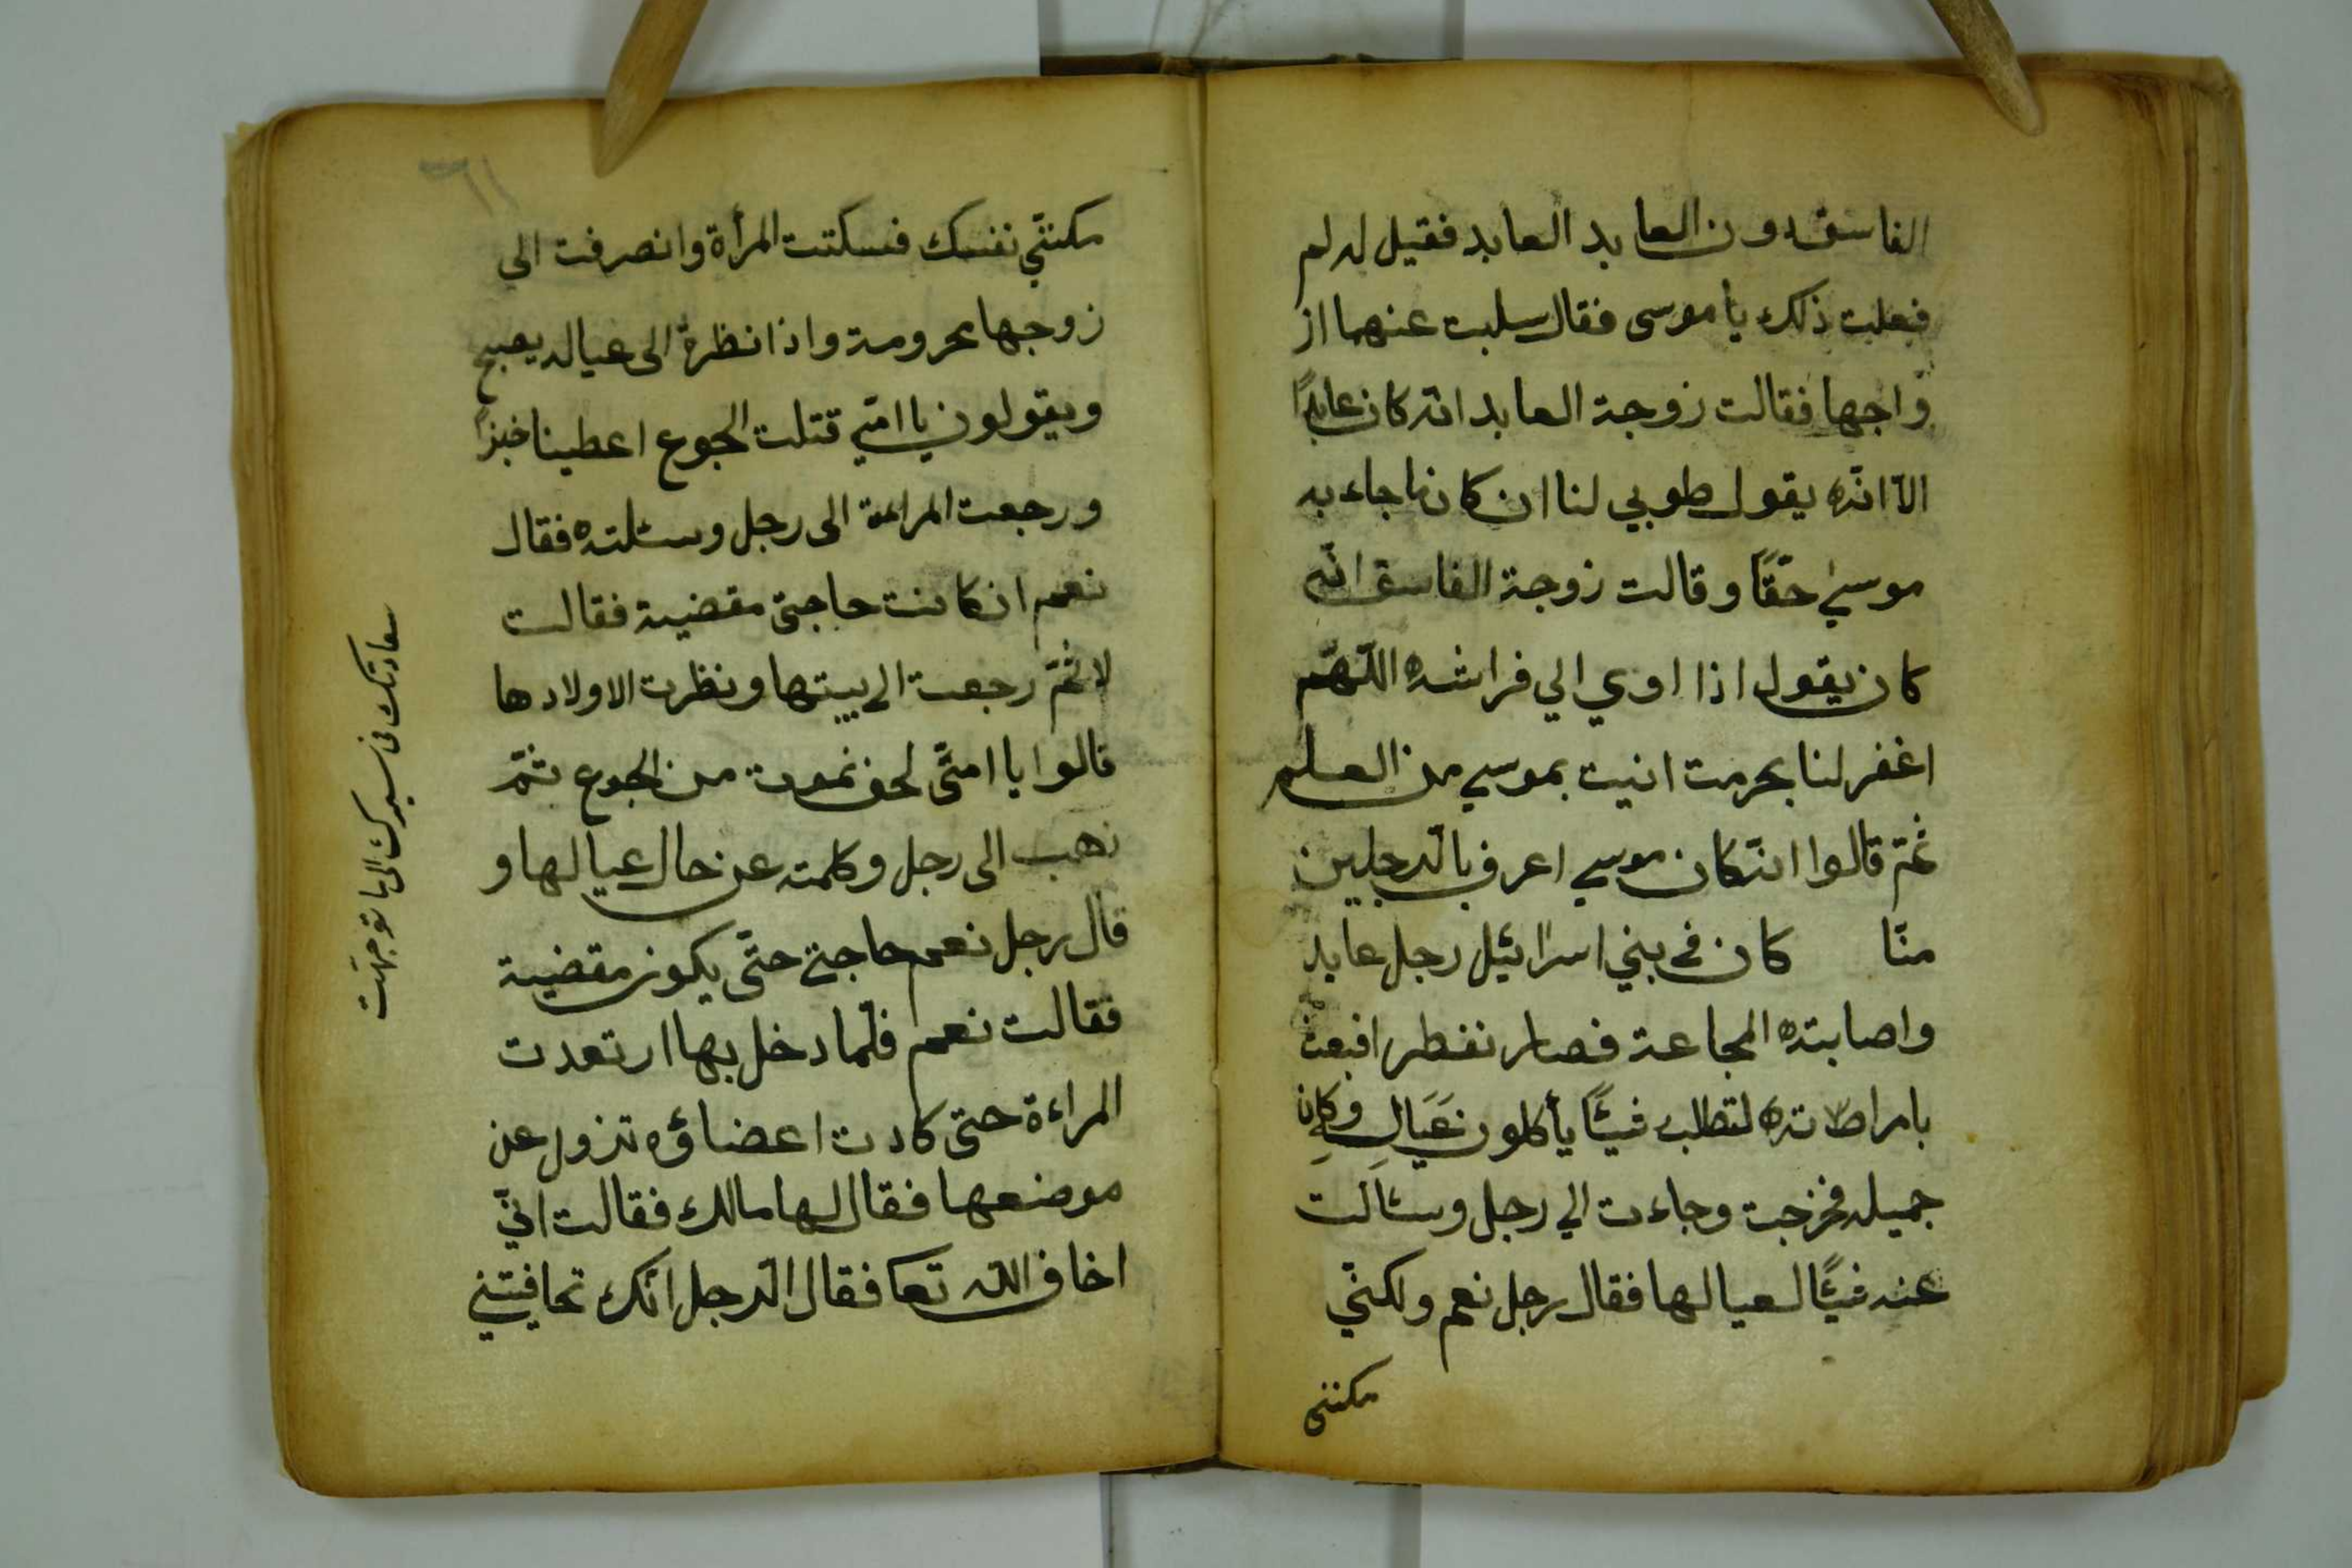 الفاسق دون العابد العابد فقيل له لم
فعلت ذلك يا موسى فقال سلبت عنهما از
واجها فقالت زوجة العابد انه كان عابدًا
الّا انّه يقول طوبي لنا ان كان ما جاء به
موسي حقًّا وقالت زوجة الفاسق انّه
كان يقول اذا اوي الي فراشه اللّهمّ
اغفر لنا بحرمت اتيت بموسي من العلم
ثمّ قالوا انّكان موسي اعرف بالرّجلين
منّا كان في بني اسرائيل رجل عابد
واصابته المجاعة فصار نفطرا فبعث
بامراته لتطلب شيئًا يأكلون عَيَالِهِ وكان
جميله فخرجت وجاءت الي رجل وسئالت
عنه شيئًا لعيالها فقال رجل نعم ولكنّي
مكنني
٦١
مكنّني نفسك فسكتت المرأة وانصرفت الى
زوجها محرومة واذا نظرة الى عياله يصيح
ويقولون يا امّي قتلت الجوع اعطينا خبزًا
ورجعت المراءة الى رجل وسئلته فقال
نعم ان كانت حاجتى مقضية فقالت
لا ثمّ رجعت الى بيتها ونظرت الاولادها
قالوا يا امّى لحف نموت من الجوع ثمّ
ذهب الى رجل وكلمته عن حال عيالها و
قال رجل نعم حاجتى حتّى يكون مقضية
فقالت نعم فلمّا دخل بها ارتعدت
المراءة حتى كادت اعضاؤه تزول عن
موضعها فقال لها مالك فقالت انّي
اخاف اللّه تعا فقال الرّجل انّك تخافيتني
سعادتك في سيرك الى ما توجهت